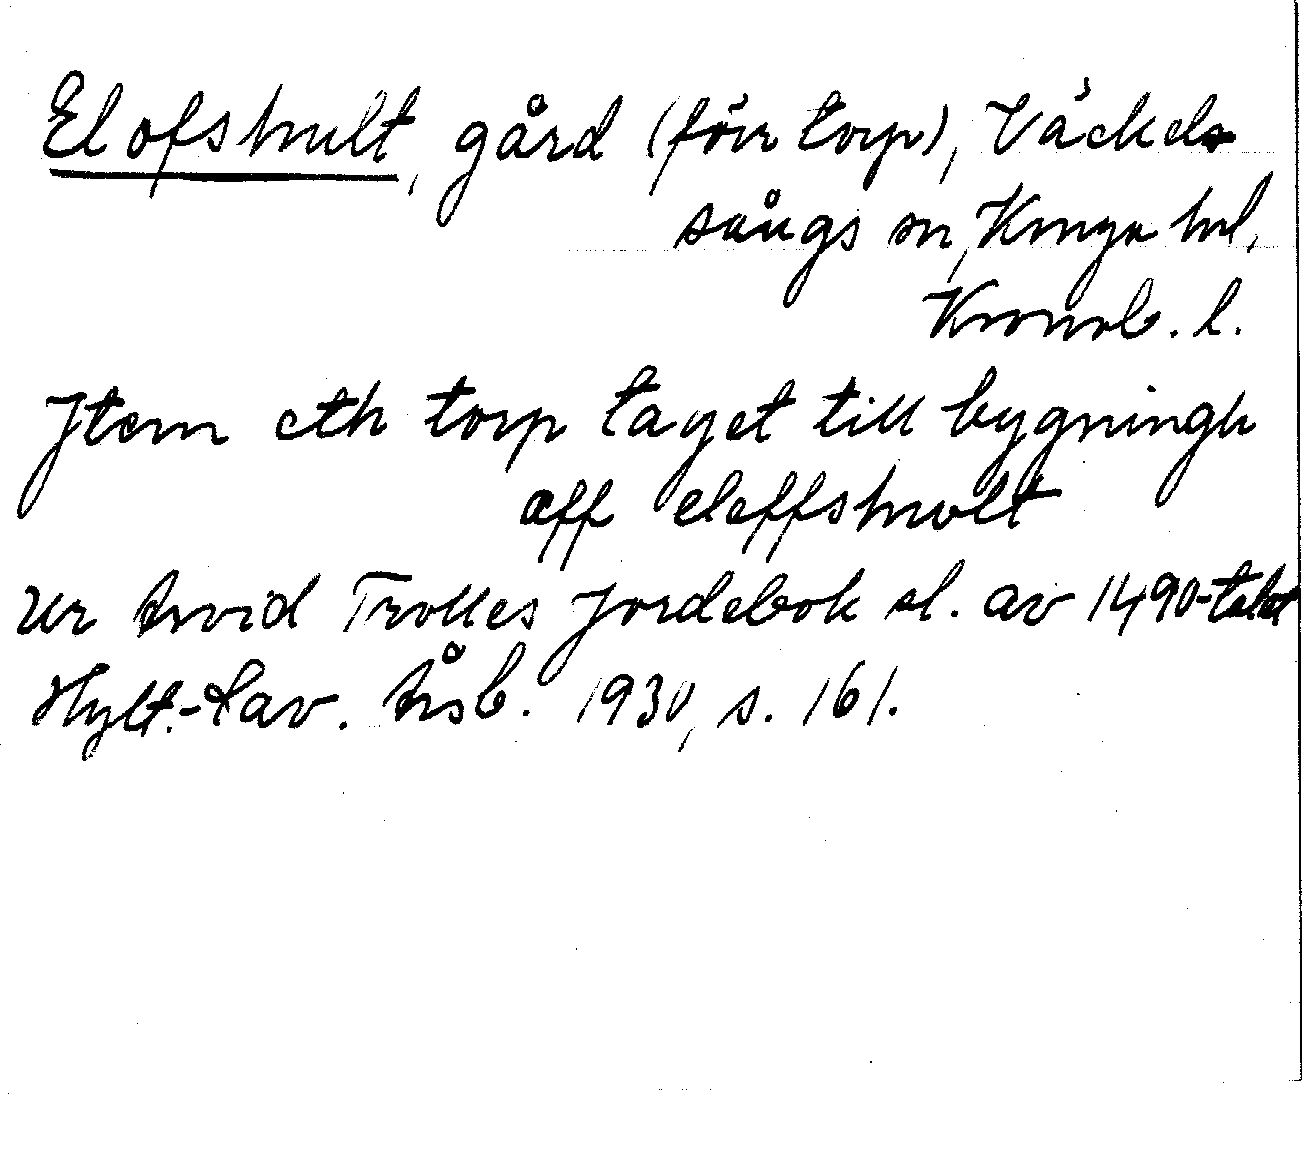 Elofshult, gård (förr torp), Väckel-
sångs sn, Konga hd,
Kronob. l.
Jtem eth torp taget till bygningh
aff eleffshwlt
Ur Arvid Trolles Jordebok sl. av 1490-talet
Hylt.-Cav. Årsb. 1930, s. 161.